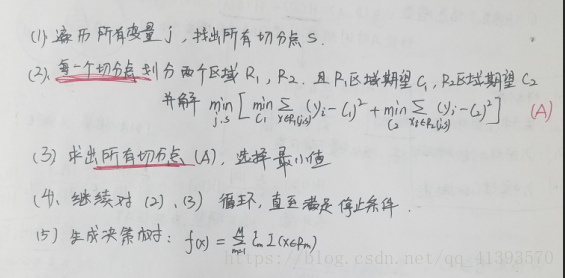 (1) 遍历所有变量 j，找出所有切分点 s.
(2)、每一个切分点划分两个区域 R₁，R₂. 且 R₁区域期望 C₁，R₂区域期望 C₂
并解 min j,s [ min C₁ ∑ x∈R₁(j,s) (yᵢ-C₁)² + min C₂ ∑ xᵢ∈R₂(j,s) (yᵢ-C₂)² ] (A)
(3) 求出所有切分点 (A)，选择最小值
(4)、继续对 (2)、(3) 循环，直至满足停止条件.
(5) 生成决策树: f(x) = ∑ᴹₘ₌₁ Ĉₘ I(x∈Rₘ)
https://blog.csdn.net/qq_41393570